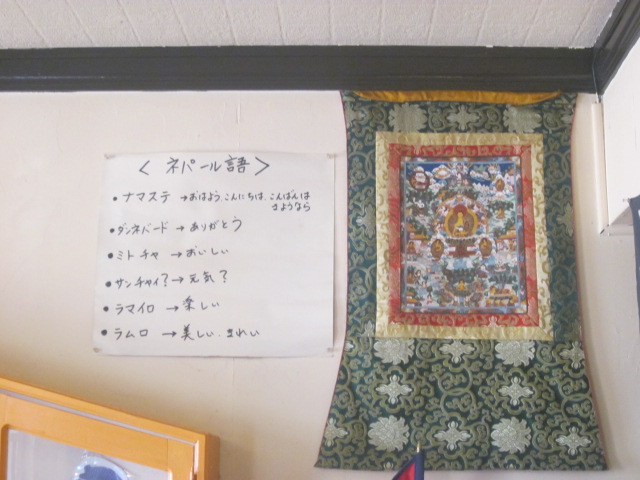 ＜ネパール語＞
・ナマステ →おはよう こんにちは、こんばんは
さようなら
・ダンネバード→ありがとう
・ミトチャ →おいしい
・サンチャイ?→元気?
・ラマイロ →楽しい
・ラムロ →美しい、きれい